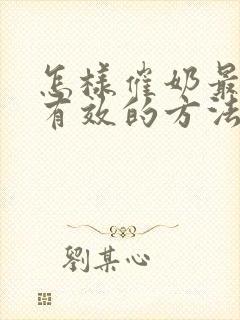 怎樣催奶最
有效的方法
劉某心